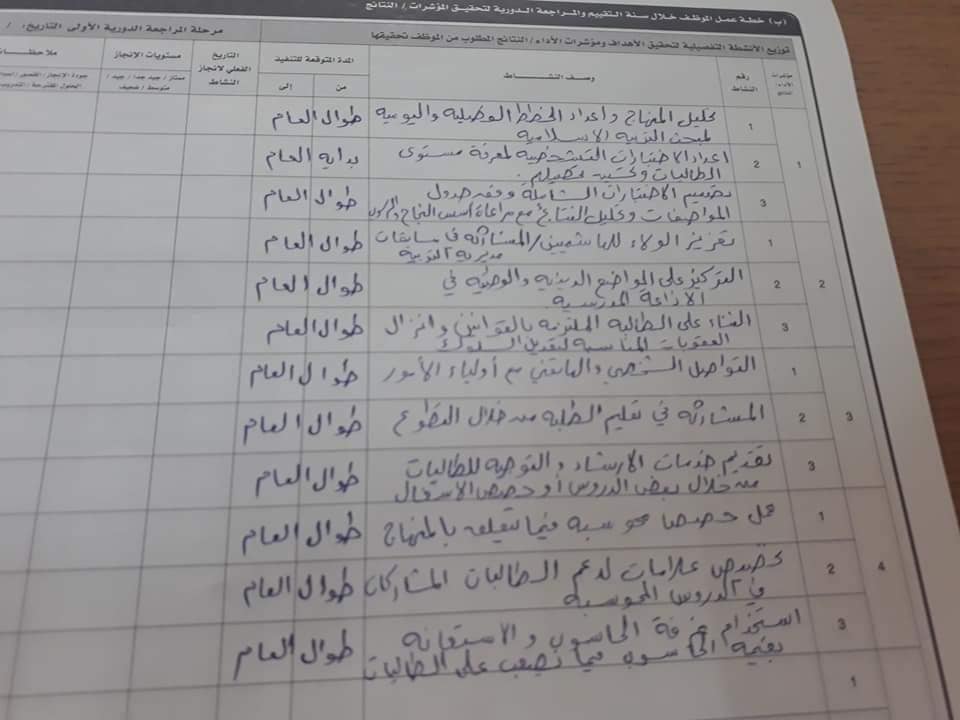 (ب) خطة عمل الموظف خلال سنة التقييم والمراجعة الدورية لتحقيق المؤشرات / النتائج
توزيع الأنشطة التفصيلية لتحقيق الأهداف ومؤشرات الأداء / النتائج المطلوب من الموظف تحقيقها
مرحلة المراجعة الدورية الأولى التاريخ: /
مؤشرات الأداء/ النتائج
رقم النشاط
وصف النشاط
المدة المتوقعة للتنفيذ
من
إلى
التاريخ الفعلي لانجاز النشاط
مستويات الإنجاز
ممتاز / جيد جدا / جيد / متوسط / ضعيف
ملاحظات
1
1 تحليل المنهاج واعداد الخطط الفصلية واليومية طوال العام
لمبحث التربية الاسلامية
2 اعداد الاختبارات التشخصية لمعرفة مستوى بداية العام
الطالبات وتحسين تحصيلهم .
3 تصميم الاختبارات الشاملة وفق جدول طوال العام
المواصفات وتحليل النتائج مع مراعاة أسس النجاح
2
1 تعزيز الولاء للهاشميين / المشاركة في مسابقات طوال العام
مديرية التربية
2 التركيز على المواضع الدينية والوطنية في طوال العام
الاذاعة المدرسية .
3 الثناء على الطالبة الملتزمة بالقوانين وانزال طوال العام
العقوبات المناسبة لتعديل السلوك
3
1 التواصل الشخصي والهاتفي مع أولياء الأمور طوال العام
2 المشاركة في تعليم الطلبة من خلال التطوع طوال العام
3 تقديم خدمات الارشاد والتوجيه للطالبات طوال العام
من خلال بعض الدروس أو حصص الاشغال
4
1 عمل حصصا محوسبة فيما يتعلق بالمنهاج طوال العام
2 تخصيص علامات لدعم الطالبات المشاركات طوال العام
في الدروس المحوسبة
3 استخدام غرفة الحاسوب والاستعانة طوال العام
بقيمة الحاسوب فيما يصعب على الطالبات
1